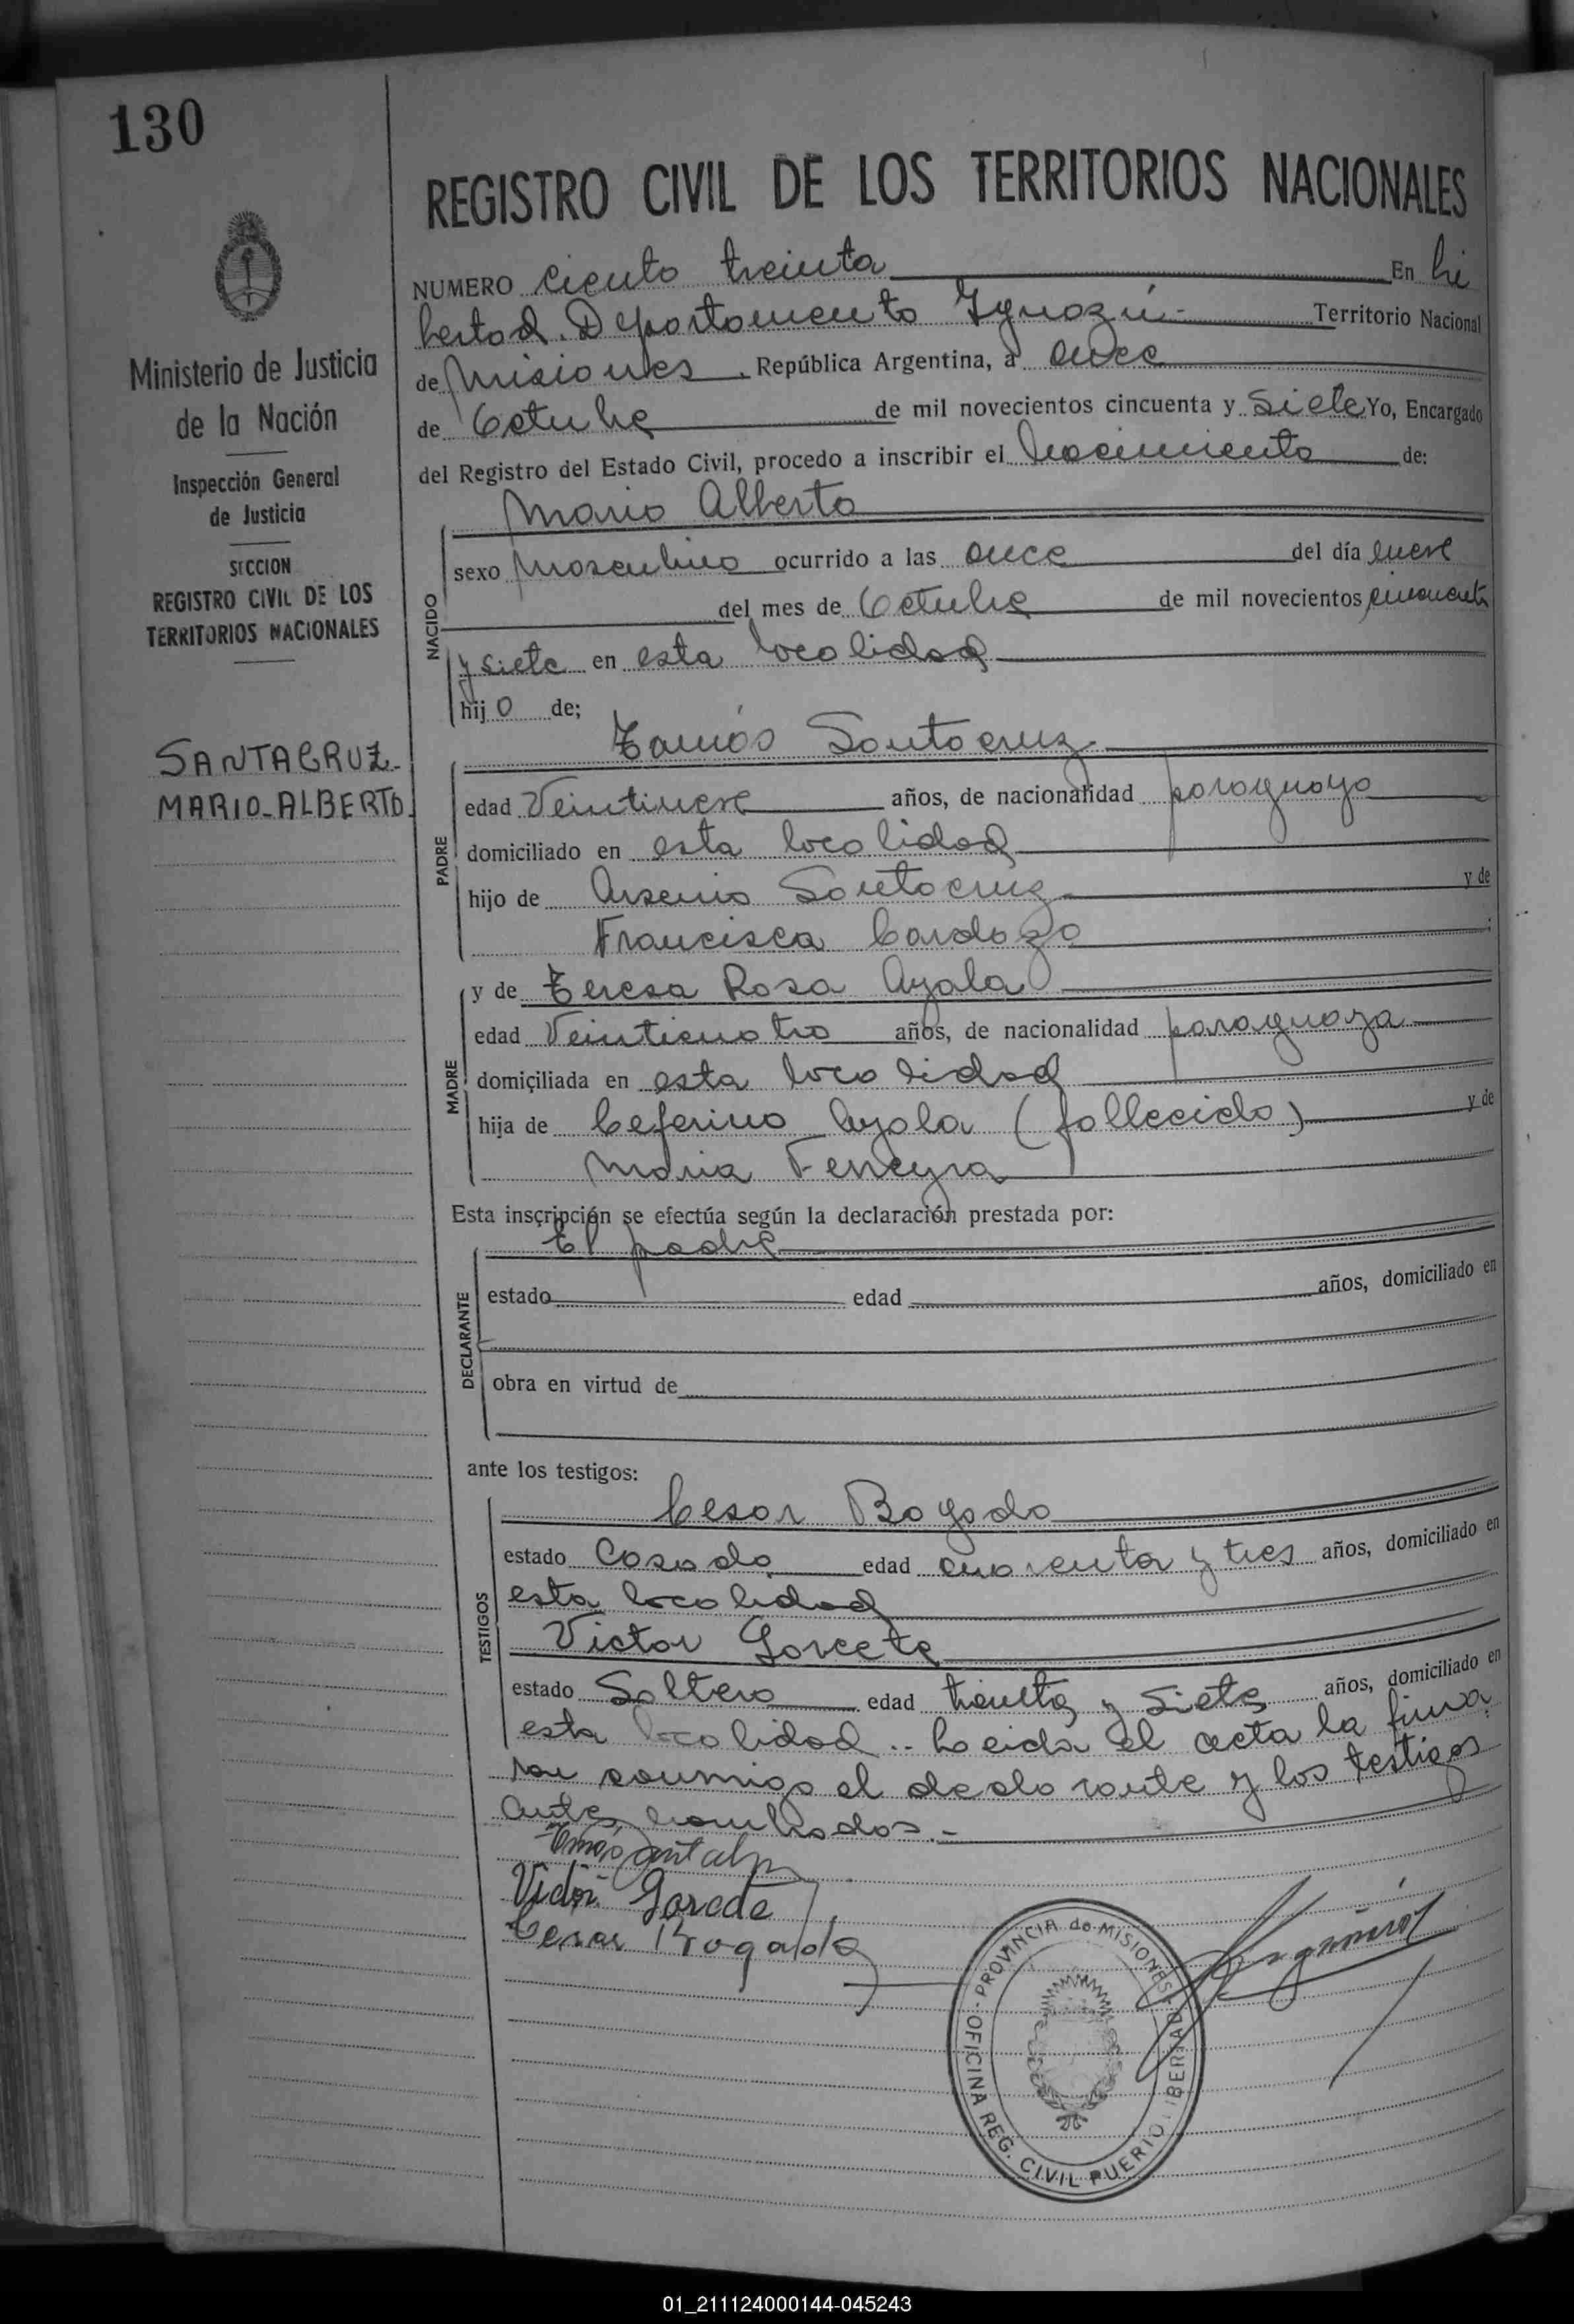 130
REGISTRO CIVIL DE LOS TERRITORIOS NACIONALES
NUMERO ciento treinta En Li
bertad. Departamento Iguazú.- Territorio Nacional
de Misiones, República Argentina, a once
de Octubre de mil novecientos cincuenta y siete Yo, Encargado
del Registro del Estado Civil, procedo a inscribir el Nacimiento de:
Mario Alberto
NACIDO
sexo Masculino ocurrido a las once del día nueve
del mes de Octubre de mil novecientos cincuenta
y siete en esta localidad
hijo de;
Ministerio de Justicia
de la Nación
Inspección General
de Justicia
SECCION
REGISTRO CIVIL DE LOS
TERRITORIOS NACIONALES
SANTACRUZ-
MARIO-ALBERTO.
Tomás Santacruz
PADRE
edad Veintinueve años, de nacionalidad paraguayo
domiciliado en esta localidad
hijo de Arsenio Santacruz y de
Francisca Cardozo
y de Teresa Rosa Ayala
MADRE
edad Veinticuatro años, de nacionalidad paraguaya
domiciliada en esta localidad
hija de Ceferino Ayala (fallecido) y de
Maria Ferreyra
Esta inscripción se efectúa según la declaración prestada por:
El padre
DECLARANTE
estado edad años, domiciliado en
obra en virtud de
ante los testigos:
Cesar Bogado
TESTIGOS
estado Casado edad cuarenta y tres años, domiciliado en
esta localidad
Victor Garcete
estado Soltero edad treinta y siete años, domiciliado en
esta localidad.- Leida el acta la firma
ron conmigo el declarante y los testigos
antes nombrados.-
Tomás
Victor Garcete
Cesar Bogado
OFICINA REG. CIVIL PUERTO LIBERTAD - PROVINCIA de MISIONES
01_211124000144-045243